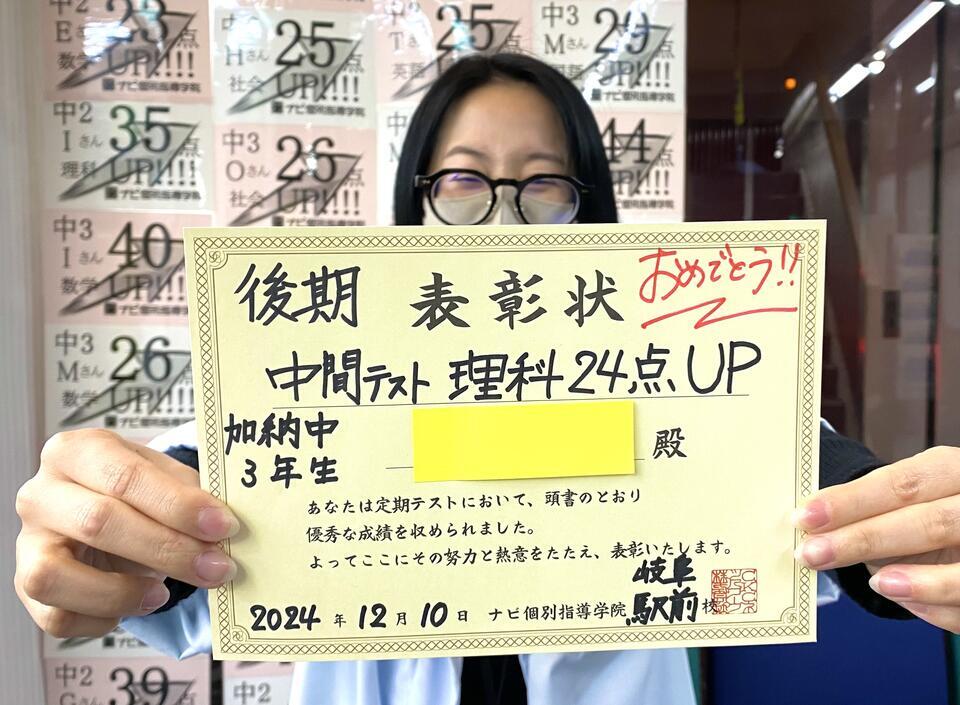 中2
23点
Eさん
数学
UP!!!!
ナビ個別指導学院
中2
35点
Iさん
理科
UP!!!!
ナビ個別指導学院
中3
40
Iさん
数学
中3
26
Mさん
数学
中2
39
25点
Hさん
社会
UP!!!!
ナビ個別指導学院
中3
26点
Oさん
社会
UP!!!!
ナビ個別指導学院
中2
25点
Tさん
英語
UP!!!!
中3
29点
Mさん
UP!!!!
ナビ個別指導学院
44点
UP!!!!
ナビ個別指導学院
後期 表彰状 おめでとう!!
中間テスト 理科24点UP
加納中
3年生
殿
あなたは定期テストにおいて、頭書のとおり
優秀な成績を収められました。
よってここにその努力と熱意をたたえ、表彰いたします。
2024年12月10日 ナビ個別指導学院 岐阜駅前校